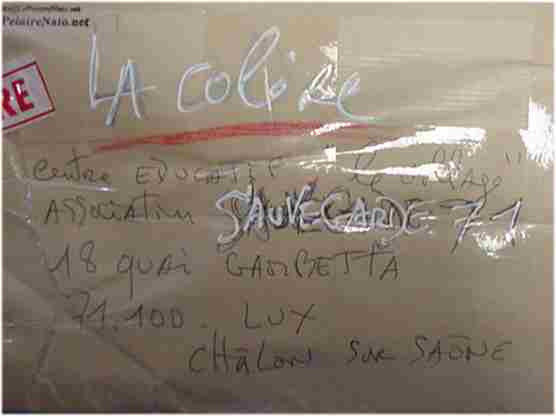 PelaireNato.net
RE
LA COLÈRE
Centre EDUCATIF "le village"
Association SAUVEGARDE 71
18 quai GAMBETTA
71.100. LUX
CHÂLON SUR SAÔNE